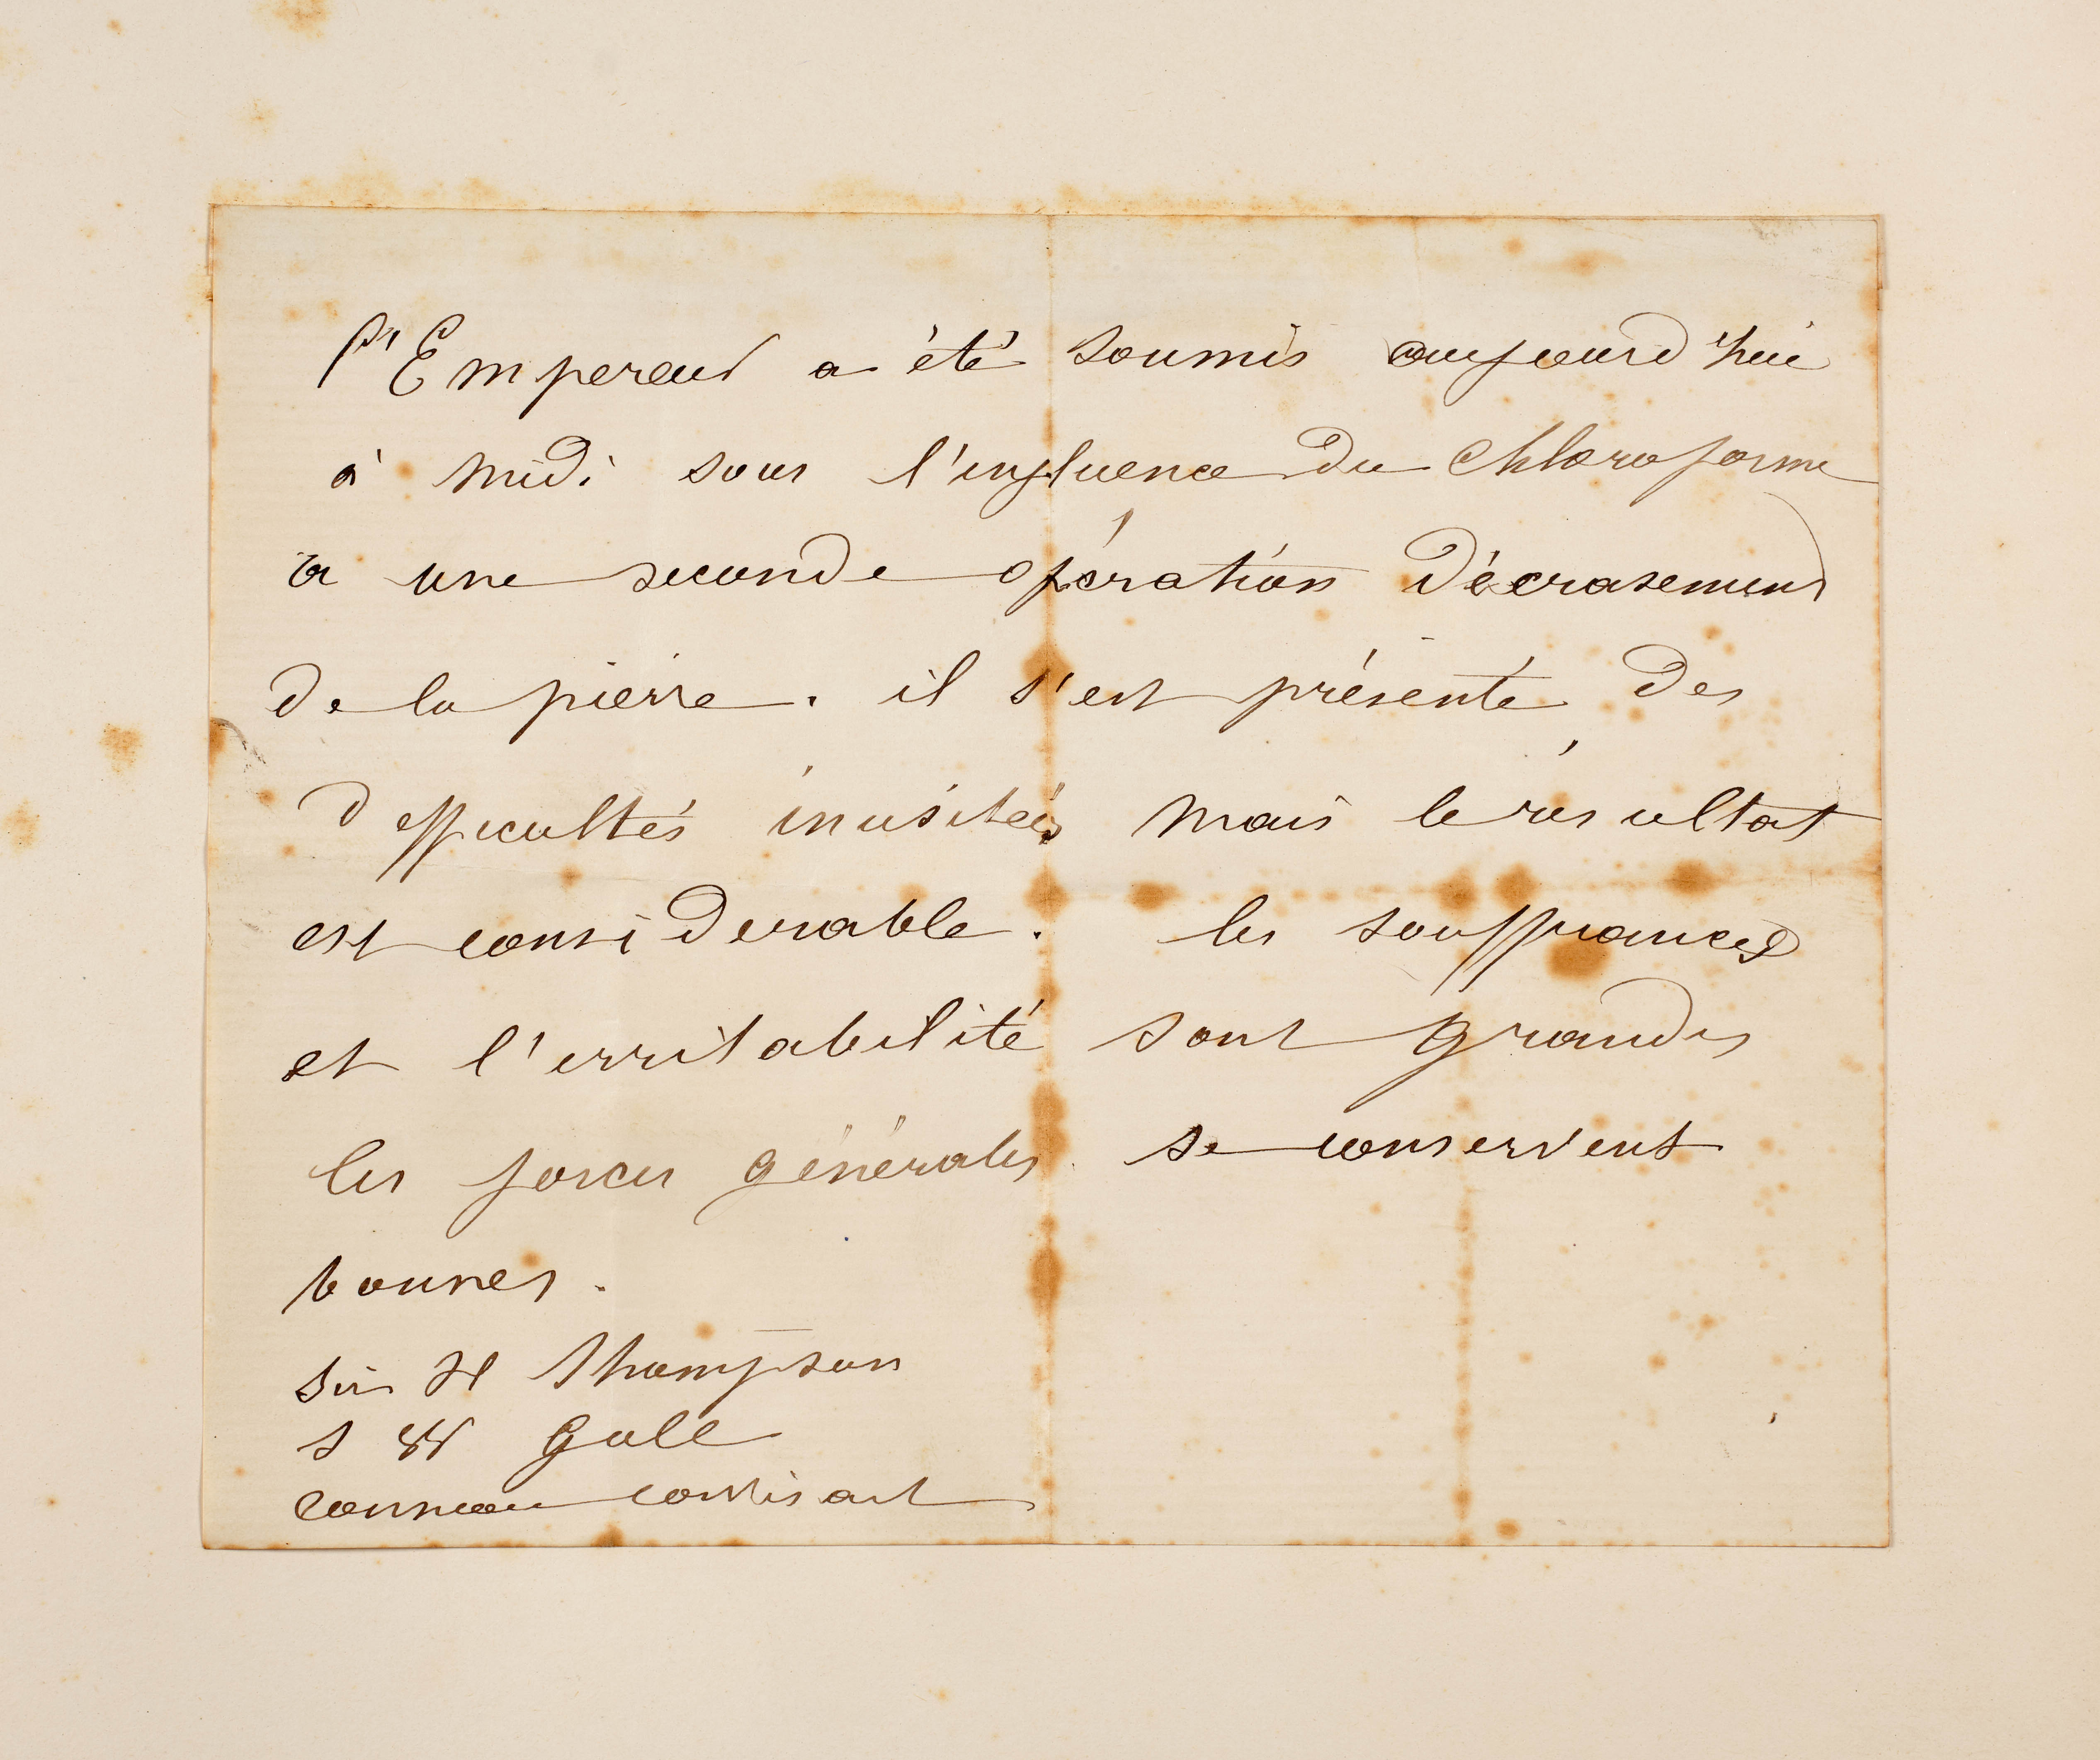 l'Empereur a été soumis aujourd'hui
à midi sous l'influence du Chloroforme
à une seconde opération d'écrasement
de la pierre. il s'est présenté des
difficultés inusitées mais le résultat
est considerable. les souffrances
et l'irritabilité sont grandes
les forces générales se conservent
bonnes.
Sir H Thompson
S W Gull
Conneau Corvisart